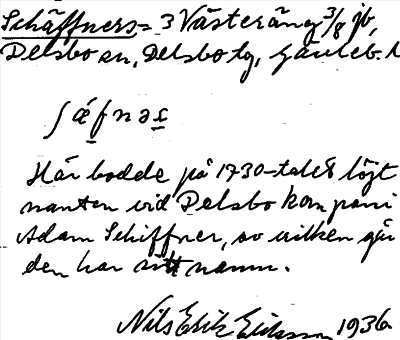 Schäffners = 3 Västeräng 3/8 jb,
Delsbo sn, Delsbo tg, Gävleb. l
ʃǽfnəs
Här bodde på 1730-talet löjt
nanten vid Delsbo kompani
Adam Schiffner, av vilken går
den har sitt namn.
Nils Erik Eriksson 1936